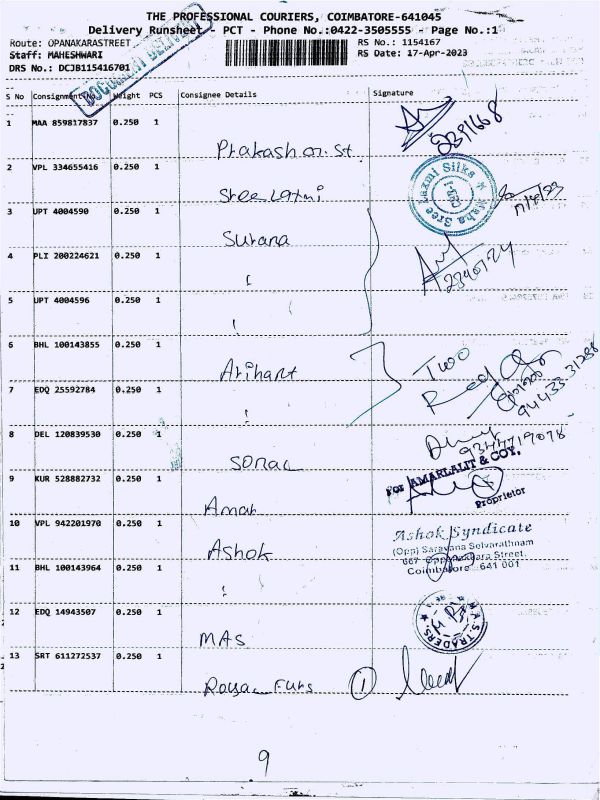 THE PROFESSIONAL COURIERS, COIMBATORE-641045
Delivery Runsheet - PCT - Phone No.:0422-3505555 - Page No.:1
Route: OPANAKARASTREET
RS No.: 1154167
Staff: MAHESHWARI
RS Date: 17-Apr-2023
DRS No.: DCJB115416701
DOCUMENT DELIVERY
S No Consignment No. Weight PCS Consignee Details Signature
1 MAA 859817837 0.250 1
Prakash
2 VPL 334655416 0.250 1
Sree Laxmi
Maha Sree Laxmi Silks
17/4/23
3 UPT 4004590 0.250 1
Surana
4 PLI 200224621 0.250 1
"
5 UPT 4004596 0.250 1
"
6 BHL 100143855 0.250 1
Arihant
Two
7 EDQ 25592784 0.250 1
"
94433-31288
8 DEL 120839530 0.250 1
Sonal
9344719078
9 KUR 528882732 0.250 1
Amar
For AMARLALIT & COY.
Proprietor
10 VPL 942201970 0.250 1
Ashok
Ashok Syndicate
(Opp) Saravana Selvarathnam
667 Oppanakara Street,
Coimbatore - 641 001
11 BHL 100143964 0.250 1
"
12 EDQ 14943507 0.250 1
MAS
M.A.S. TRADERS
13 SRT 611272537 0.250 1
Royal Furs 1
9